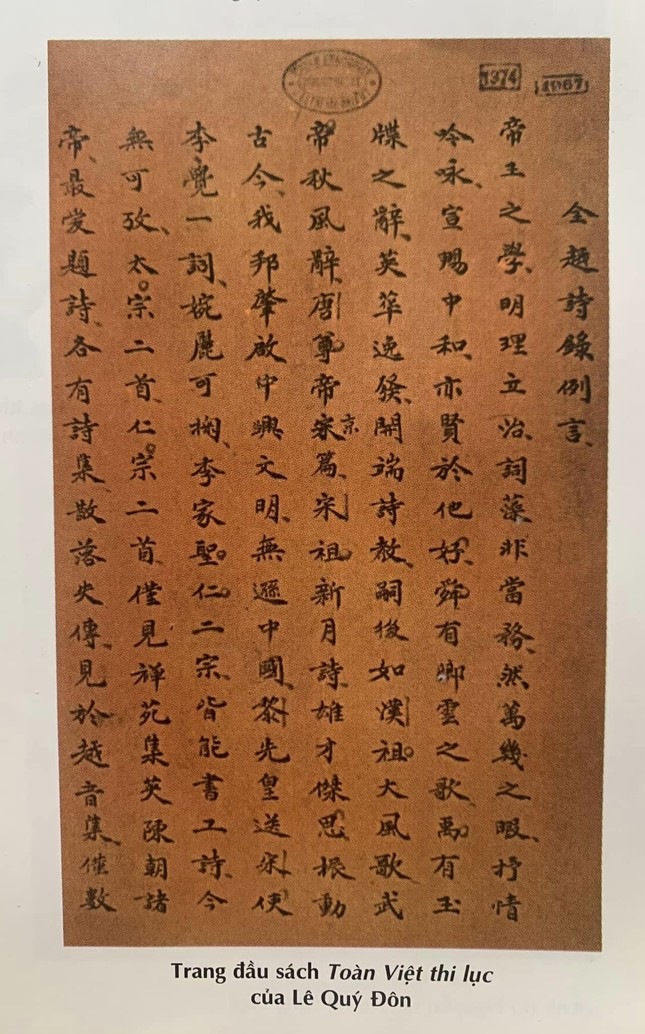 1374
全越詩錄例言
帝王之學明理立治詞藻非當務然萬幾之暇抒情
吟咏宣暢中和亦賢於他好舜有卿雲之歌禹有玉
牒之辭英華逸發開端詩教嗣後如漢祖大風歌武
帝秋風辭唐尊帝宋京篇宋祖新月詩雄才傑思振動
古今我邦肇啟中興文明無遜中國黎先皇送宋使
李覺一詞婉麗可掬李家聖仁二宗皆能書工詩今
無可攷太宗二首仁宗二首僅見禪苑集英陳朝諸
帝最愛題詩各有詩集散落失傳見於越音集僅數
Trang đầu sách Toàn Việt thi lục
của Lê Quý Đôn